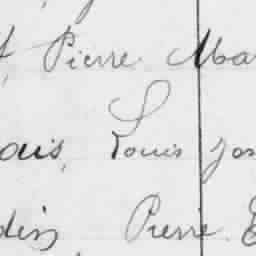 Pierre Mar
ais, Louis Jos
din Pierre E